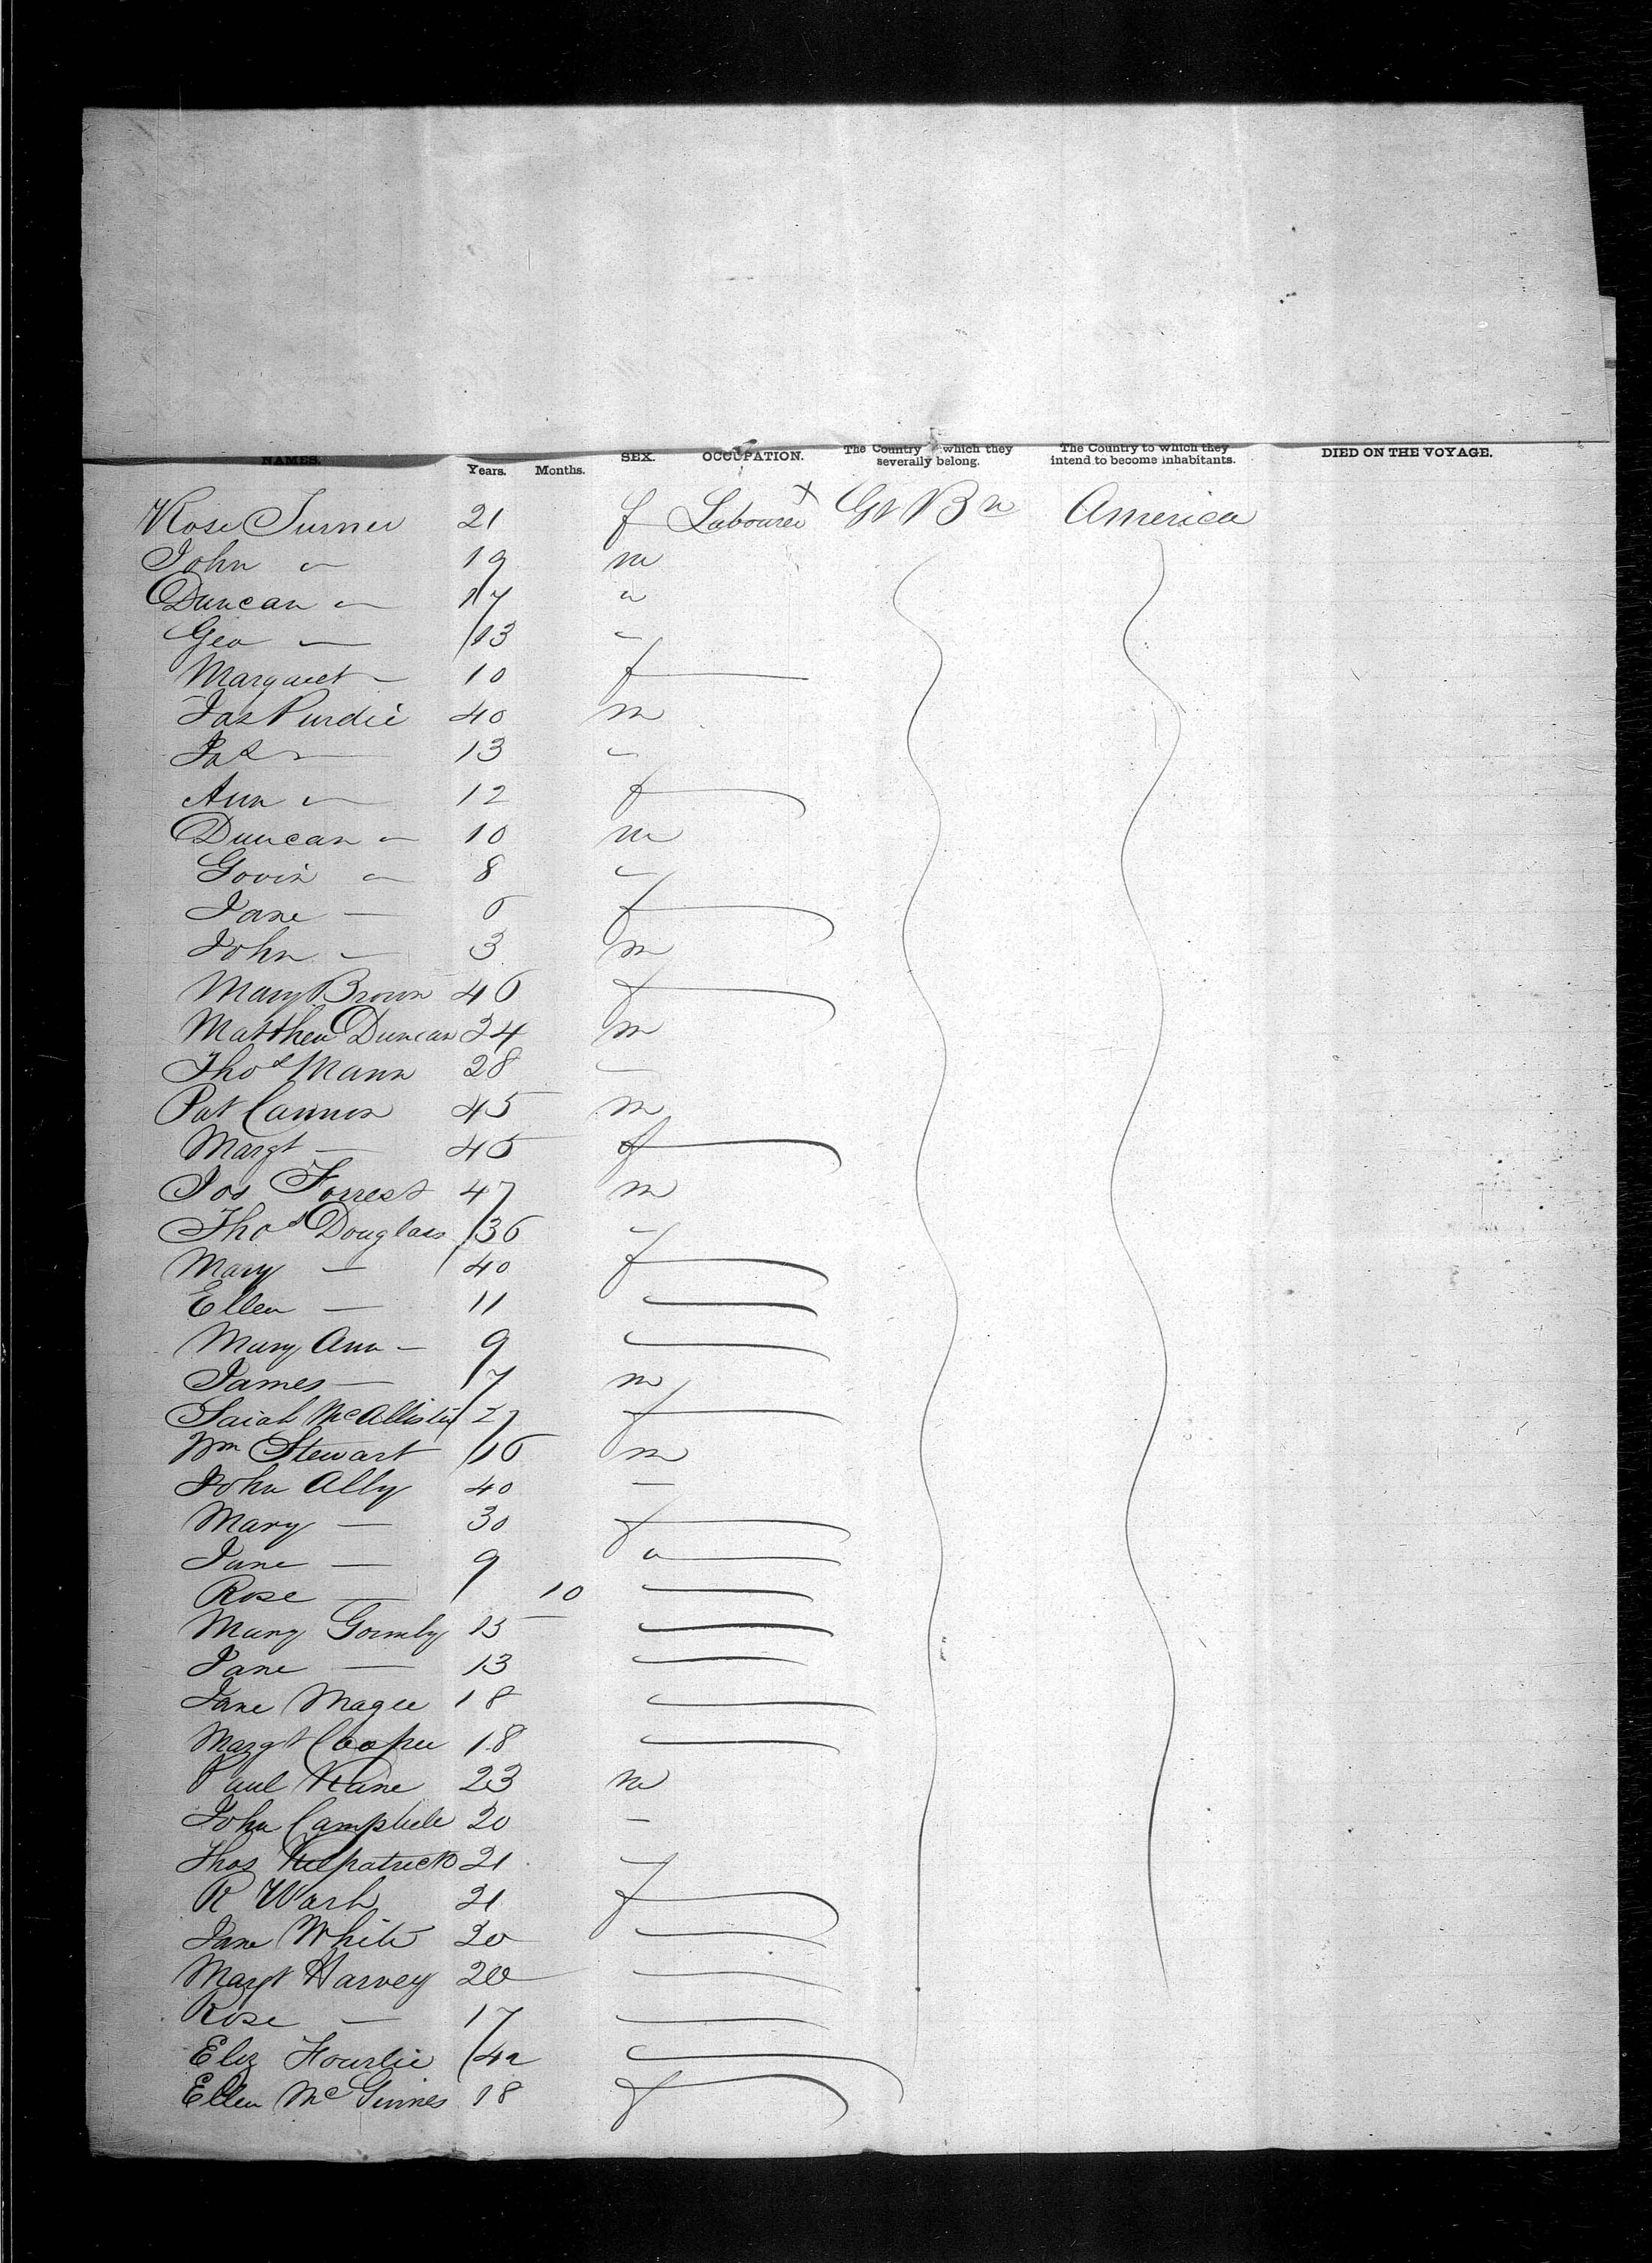 NAMES. Years. Months. SEX. OCCUPATION. The Country which they severally belong. The Country to which they intend to become inhabitants. DIED ON THE VOYAGE.
Rose Turner 21 f Labourer x Gt Bn America
John " 19 m
Duncan " 17 "
Geo — 13 "
Margaret — 10 f
Jas Purdie 40 m
Jas " 13 "
Ann " 12 f
Duncan " 10 m
Govin " 8 "
Jane — 6 f
John — 3 m
Mary Brown 46 f
Matthew Duncan 24 m
Thos Mann 28 —
Pat Cannon 45 m
Margt — 45 f
Jos Forrest 47 m
Thos Douglass 36 "
Mary — 40 f
Ellen — 11 —
Mary Ann — 9 "
James — 7 m
Sarah McAllister 27 f
Wm Stewart 16 m
John Ally 40 —
Mary — 30 f
Jane — 9 "
Rose — 10 —
Mary Gormly 15 —
Jane — 13 —
Jane Magee 18 —
Margt Cooper 18 —
Paul Kane 23 m
John Campbell 20 —
Thos Kilpatrick 21 —
R Wash 21 f
Jane White 20 —
Margt Harvey 20 —
Rose — 17 —
Eliz Hourlie 42 "
Ellen McGinnes 18 f